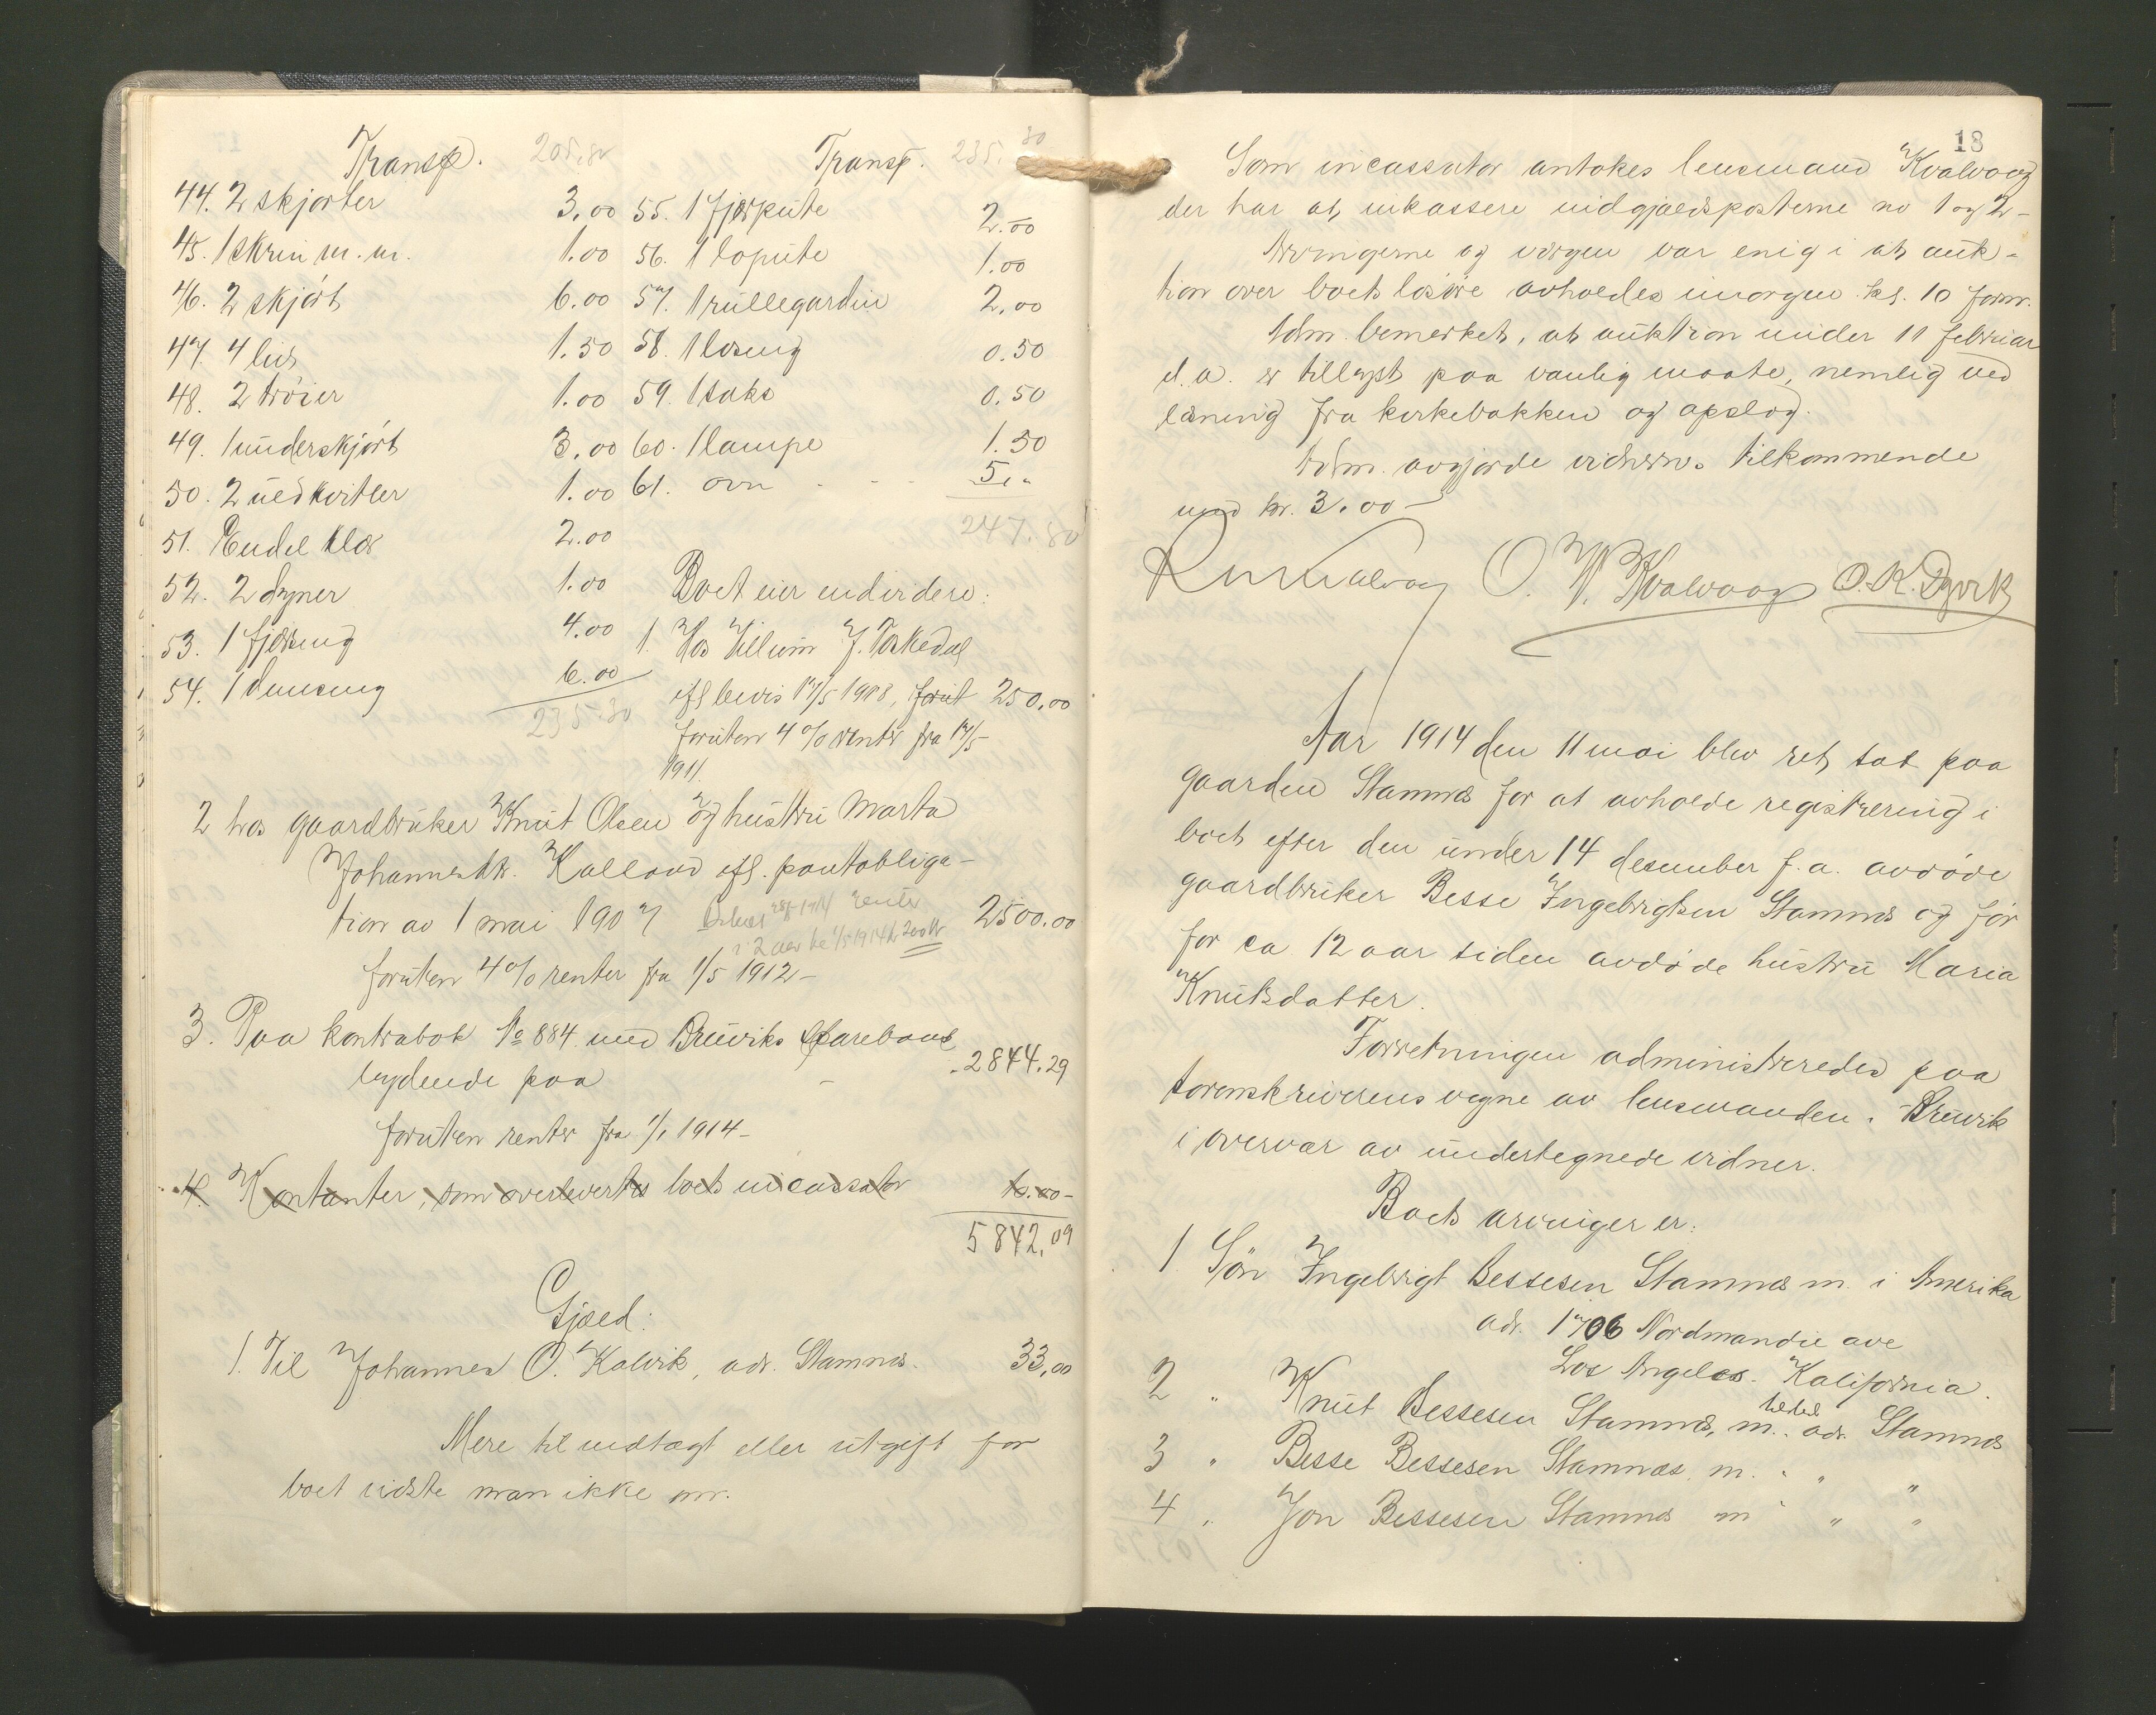 Transp. 205.80
44. 2 skjorter 3.00
45. 1 skrin m.m. 1.00
46. 2 skjørt 6.00
47. 4 liv 1.50
48. 2 trøier 1.00
49. 1 underskjørt 3.00
50. 2 uldkvitler 1.00
51. Endel klær 2.00
52. 2 dyner 1.00
53. 1 fjærseng 4.00
54. 1 6.00
235.30
Transp. 235.30
55. 1 fjærpute 2.00
56. 1 lopute 1.00
57. 1 rullegardin 2.00
58. 1 loseng 0.50
59. 1 saks 0.50
60. 1 lampe 1.50
61. ovn - - - 5 „ „
247.80
Boet eier endvidere:
1. Hos Villum J. Toskedal
ifl bevis 17/5 1908, forut 250.00
foruten 4 % renter fra 17/5
1911.
2 hos gaardbruker Knut Olsen og hustru Marta
Johannesdtr. Kalland ifl. pantobliga-
tion av 1 mai 1907 renter 2500.00
i 2 aar til 1/5 1914 kr 200
foruten 4 % renter fra 1/5 1912 -
3. Paa kontrabok No 884 med Bruviks Sparebank
lydende paa - 2844.29
foruten renter fra 1/1 1914 -
4. Kontanter, som overlevertes boets incassator 6.00 -
5842.09
Gjæld:
1. Til Johannes O. Kalvik, adr. Stamnes. 33.00
Mere til indtægt eller utgift for
boet vidste man ikke av.
18
Som incassator antokes lensmand Kvalvaag
der har at inkassere uidgjældsposterne no 1 og 2 -
Arvingerne og vergen var enig i at auk-
tion over boets løsøre avholdes imorgen kl. 10 form.
Adm. bemerket, at auktion under 11 februar
d.a. er tillyst paa vanlig maate, nemlig ved
læsning fra kirkebakken og opslag.
Adm. avgjorde vidnerns tilkommende
med kr. 3.00 -
Kvalvaag O. W. Kvalvaag O. K. Dyvik
Aar 1914 den 11 mai blev ret sat paa
gaarden Stamnes for at avholde registrering i
boet efter den under 14 desember f.a. avdøde
gaardbruker Besse Ingebrigtsen Stamnes og før
for ca 12 aar siden avdøde hustru Maria
Knutsdatter.
Forretningen administreredes paa
sorenskriverens vegne av lensmanden i Bruvik
i overvær av undertegnede vidner.
Boets arvinger er:
1. Søn Ingebrigt Bessesen Stamnes m. i Amerika
adr. 1706 Nordmandie ave
Los Angelos. Kalifornia.
2 „ Knut Bessesen Stamnes, m. tilsted adr. Stamnes
3 „ Besse Bessesen Stamnes m. „ „ „
4 „ Jon Bessesen Stamnes m „ „ „